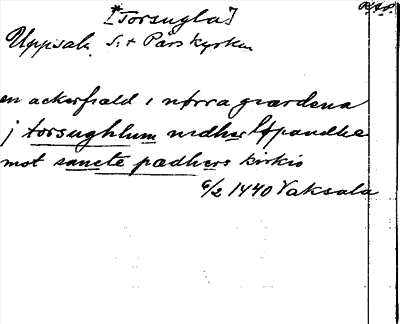 [Torsugla]
R.A.P.
Uppsala, S:t Pärs kyrka
en ackerfiæld i nørra giærdena
j torsughlum nidher løpandhe
mot sancte pædhers kirkio
6/2 1440 Vaksala